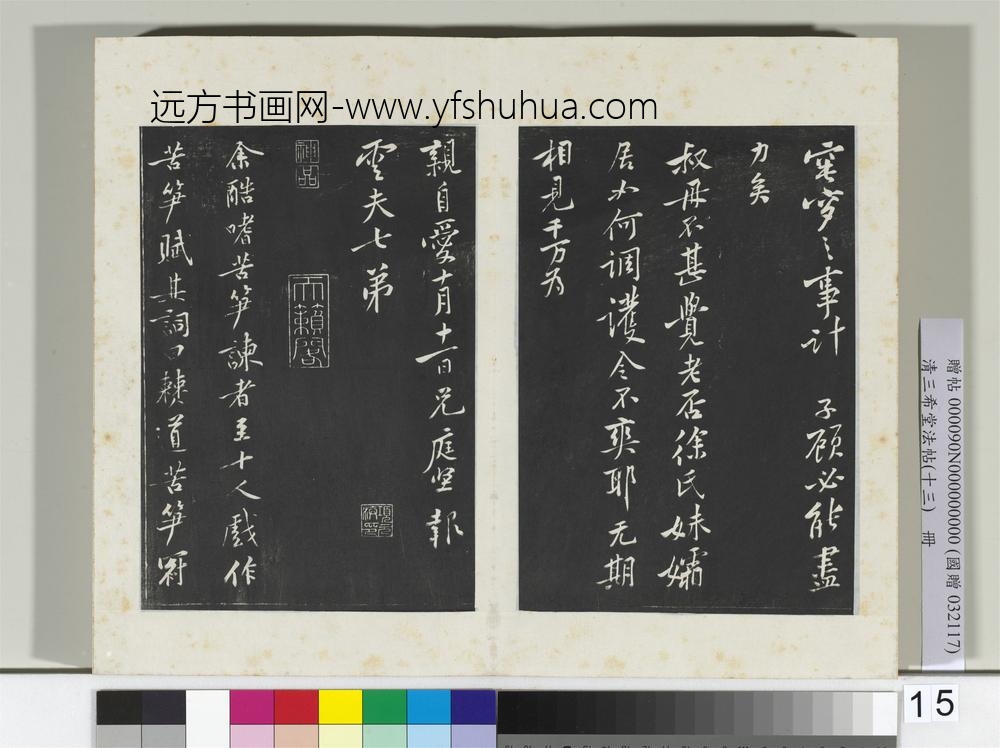 远方书画网-www.yfshuhua.com
窀穸之事计 子顾必能盡
力矣
叔母不甚覺老否徐氏妹孀
居如何調護令不爽耶无期
相見千万为
親自愛十月十一日兄庭坚報
雲夫七弟
神品
天籟閣
余酷嗜苦笋諫者至十人戲作
苦笋賦其詞曰僰道苦笋冠
贈帖 000090N000000000 (國贈 032117)
清三希堂法帖(十三) 冊
15